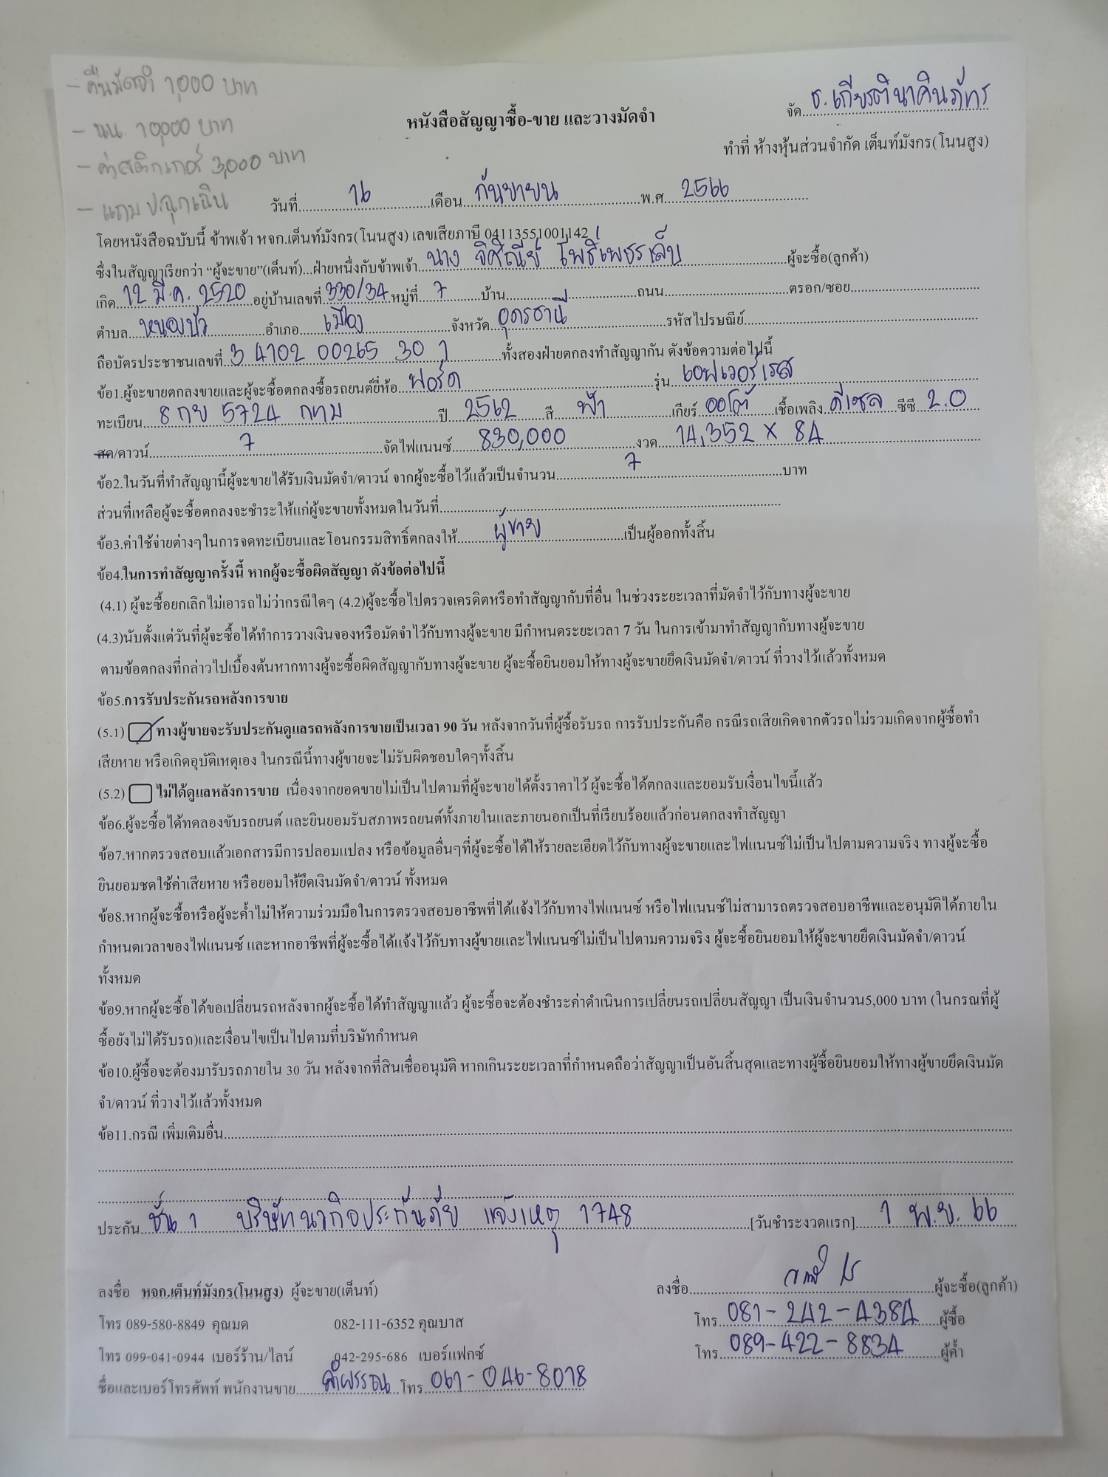 - คืนมัดจำ 1,000 บาท
- แนน 10,000 บาท
- ค่าสติกเกอร์ 3,000 บาท
- แถม ปะฉุกเฉิน
จัด ธ.เกียรตินาคินภัทร
หนังสือสัญญาซื้อ-ขาย และวางมัดจำ
ทำที่ ห้างหุ้นส่วนจำกัด เต็นท์มังกร(โนนสูง)
วันที่ 16 เดือน กันยายน พ.ศ. 2566
โดยหนังสือฉบับนี้ ข้าพเจ้า หจก.เต็นท์มังกร(โนนสูง) เลขเสียภาษี 04113551001142
ซึ่งในสัญญาเรียกว่า "ผู้จะขาย"(เต็นท์)...ฝ่ายหนึ่งกับข้าพเจ้า นาง โพธิ์เพชรเล็บ ผู้จะซื้อ(ลูกค้า)
เกิด 12 มี.ค. 2520 อยู่บ้านเลขที่ 330/34 หมู่ที่ 7 บ้าน ถนน ตรอก/ซอย
ตำบล หนองบัว อำเภอ เมือง จังหวัด อุดรธานี รหัสไปรษณีย์
ถือบัตรประชาชนเลขที่ 3 4102 00265 30 1 ทั้งสองฝ่ายตกลงทำสัญญากัน ดังข้อความต่อไปนี้
ข้อ1.ผู้จะขายตกลงขายและผู้จะซื้อตกลงซื้อรถยนต์ยี่ห้อ ฟอร์ด รุ่น เอฟเวอร์เรส
ทะเบียน 8 กข 5724 กทม ปี 2562 สี ฟ้า เกียร์ ออโต้ เชื้อเพลิง ดีเซล ซีซี 2.0
สด/ดาวน์ 7 จัดไฟแนนซ์ 830,000 งวด 14,352 x 84
ข้อ2.ในวันที่ทำสัญญานี้ผู้จะขายได้รับเงินมัดจำ/ดาวน์ จากผู้จะซื้อไว้แล้วเป็นจำนวน 7 บาท
ส่วนที่เหลือผู้จะซื้อตกลงจะชำระให้แก่ผู้จะขายทั้งหมดในวันที่
ข้อ3.ค่าใช้จ่ายต่างๆในการจดทะเบียนและโอนกรรมสิทธิ์ตกลงให้ ผู้ขาย เป็นผู้ออกทั้งสิ้น
ข้อ4.ในการทำสัญญาครั้งนี้ หากผู้จะซื้อผิดสัญญา ดังข้อต่อไปนี้
(4.1) ผู้จะซื้อยกเลิกไม่เอารถไม่ว่ากรณีใดๆ (4.2)ผู้จะซื้อไปตรวจเครดิตหรือทำสัญญากับที่อื่น ในช่วงระยะเวลาที่มัดจำไว้กับทางผู้จะขาย
(4.3)นับตั้งแต่วันที่ผู้จะซื้อได้ทำการวางเงินจองหรือมัดจำไว้กับทางผู้จะขาย มีกำหนดระยะเวลา 7 วัน ในการเข้ามาทำสัญญากับทางผู้จะขาย
ตามข้อตกลงที่กล่าวไปเบื้องต้นหากทางผู้จะซื้อผิดสัญญากับทางผู้จะขาย ผู้จะซื้อยินยอมให้ทางผู้จะขายยึดเงินมัดจำ/ดาวน์ ที่วางไว้แล้วทั้งหมด
ข้อ5.การรับประกันรถหลังการขาย
(5.1) ทางผู้ขายจะรับประกันดูแลรถหลังการขายเป็นเวลา 90 วัน หลังจากวันที่ผู้ซื้อรับรถ การรับประกันคือ กรณีรถเสียเกิดจากตัวรถไม่รวมเกิดจากผู้ซื้อทำ
เสียหาย หรือเกิดอุบัติเหตุเอง ในกรณีนี้ทางผู้ขายจะไม่รับผิดชอบใดๆทั้งสิ้น
(5.2) ไม่ได้ดูแลหลังการขาย เนื่องจากยอดขายไม่เป็นไปตามที่ผู้จะขายได้ตั้งราคาไว้ ผู้จะซื้อได้ตกลงและยอมรับเงื่อนไขนี้แล้ว
ข้อ6.ผู้จะซื้อได้ทดลองขับรถยนต์ และยินยอมรับสภาพรถยนต์ทั้งภายในและภายนอกเป็นที่เรียบร้อยแล้วก่อนตกลงทำสัญญา
ข้อ7.หากตรวจสอบแล้วเอกสารมีการปลอมแปลง หรือข้อมูลอื่นๆที่ผู้จะซื้อได้ให้รายละเอียดไว้กับทางผู้จะขายและไฟแนนซ์ไม่เป็นไปตามความจริง ทางผู้จะซื้อ
ยินยอมชดใช้ค่าเสียหาย หรือยอมให้ยึดเงินมัดจำ/ดาวน์ ทั้งหมด
ข้อ8.หากผู้จะซื้อหรือผู้จะค้ำไม่ให้ความร่วมมือในการตรวจสอบอาชีพที่ได้แจ้งไว้กับทางไฟแนนซ์ หรือไฟแนนซ์ไม่สามารถตรวจสอบอาชีพและอนุมัติได้ภายใน
กำหนดเวลาของไฟแนนซ์ และหากอาชีพที่ผู้จะซื้อได้แจ้งไว้กับทางผู้ขายและไฟแนนซ์ไม่เป็นไปตามความจริง ผู้จะซื้อยินยอมให้ผู้จะขายยึดเงินมัดจำ/ดาวน์
ทั้งหมด
ข้อ9.หากผู้จะซื้อได้ขอเปลี่ยนรถหลังจากผู้จะซื้อได้ทำสัญญาแล้ว ผู้จะซื้อจะต้องชำระค่าดำเนินการเปลี่ยนรถเปลี่ยนสัญญา เป็นเงินจำนวน5,000 บาท (ในกรณที่ผู้
ซื้อยังไม่ได้รับรถ)และเงื่อนไขเป็นไปตามที่บริษัทกำหนด
ข้อ10.ผู้ซื้อจะต้องมารับรถภายใน 30 วัน หลังจากที่สินเชื่ออนุมัติ หากเกินระยะเวลาที่กำหนดถือว่าสัญญาเป็นอันสิ้นสุดและทางผู้ซื้อยินยอมให้ทางผู้ขายยึดเงินมัด
จำ/ดาวน์ ที่วางไว้แล้วทั้งหมด
ข้อ11.กรณี เพิ่มเติมอื่น
ประกัน ชั้น 1 บริษัทนากิอประกันภัย แจ้งเหตุ 1748 [วันชำระงวดแรก] 1 พ.ย. 66
ลงชื่อ หจก.เต็นท์มังกร(โนนสูง) ผู้จะขาย(เต็นท์) ลงชื่อ ผู้จะซื้อ(ลูกค้า)
โทร 089-580-8849 คุณมด 082-111-6352 คุณบาส โทร 081-242-4384 ผู้ซื้อ
โทร 099-041-0944 เบอร์ร้าน/ไลน์ 042-295-686 เบอร์แฟกซ์ โทร 089-422-8834 ผู้ค้ำ
ชื่อและเบอร์โทรศัพท์ พนักงานขาย คำพรรณ โทร 061-046-8018